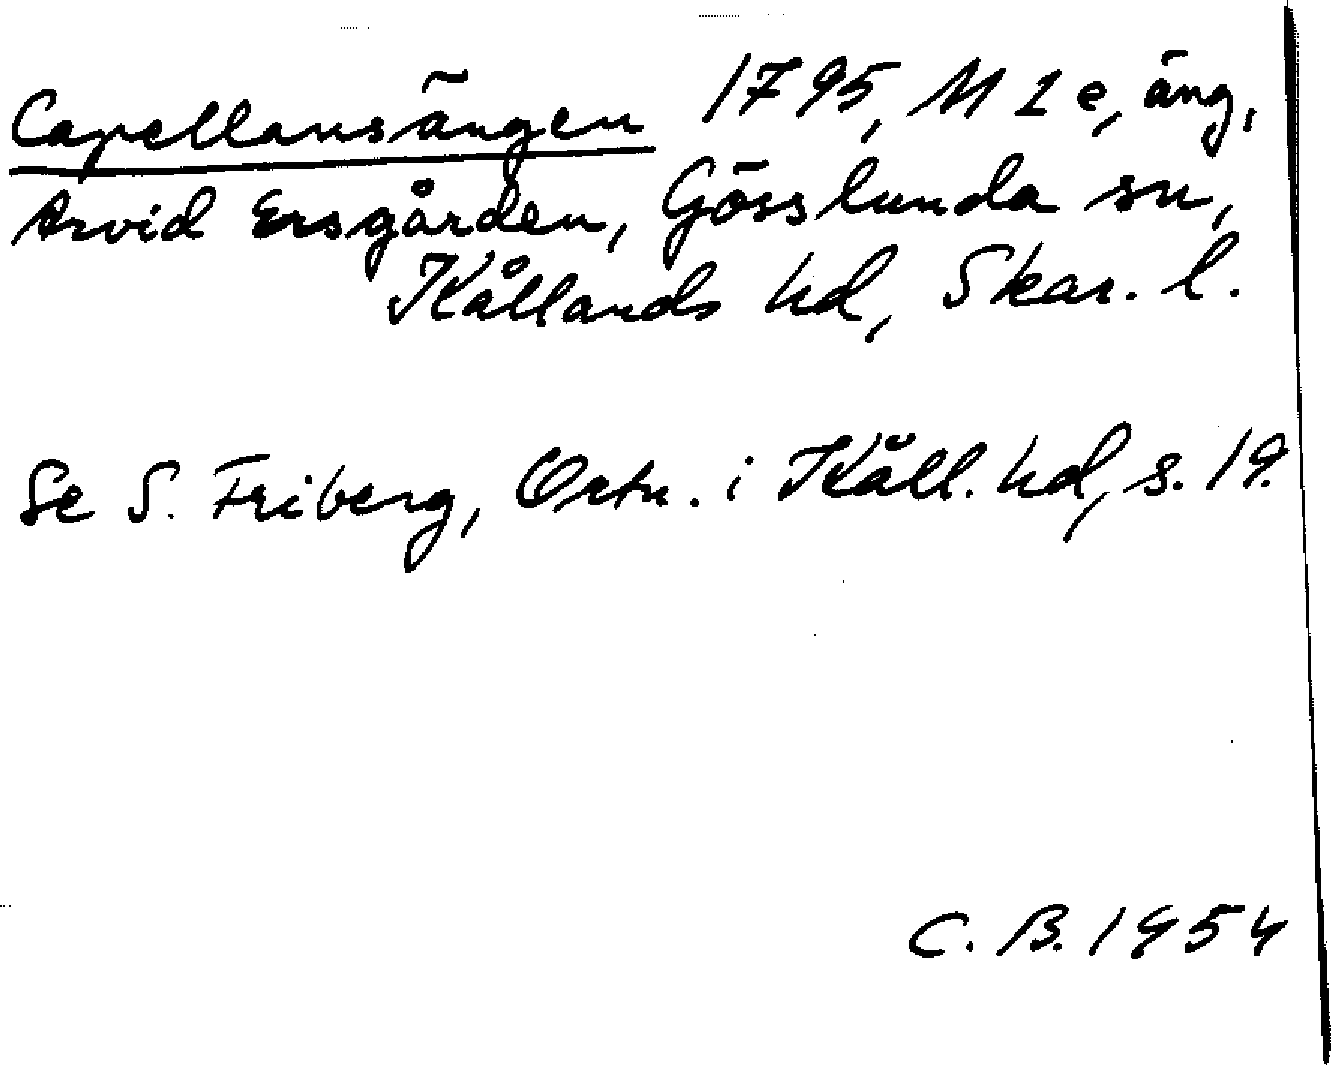 Capellansängen 1795, M 1 e, äng,
Arvid Ersgården, Gösslunda sn,
Kållands hd, Skar. l.
Se S. Friberg, Ortn. i Kåll. hd, s. 19.
C. B. 1954